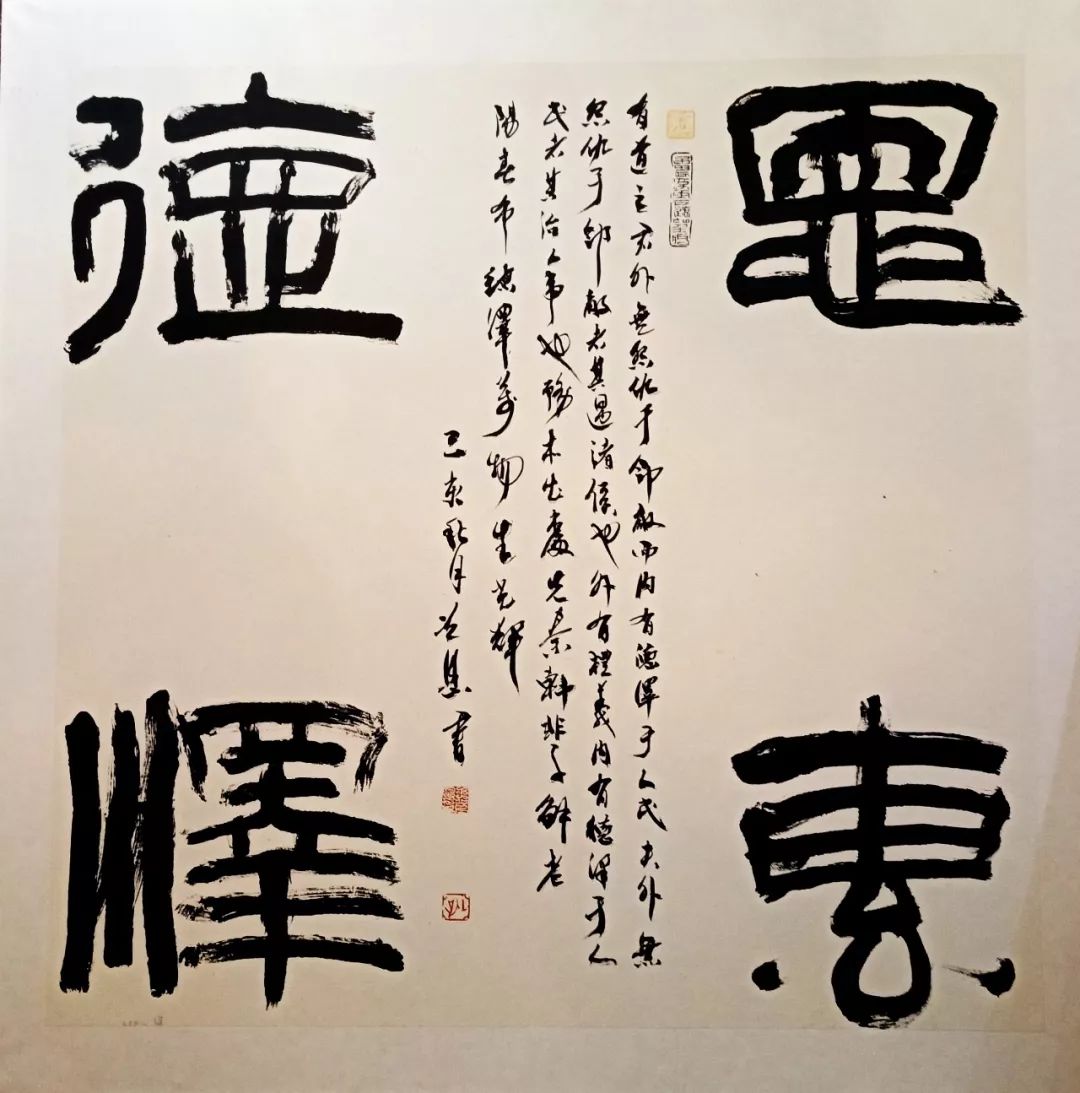 恩惠
有道之君外無怨仇于鄰敵而内有德澤于人民夫外無
怨仇于鄰敵者其遇諸侯也外有禮義内有德澤于人
民者其治人事也務本出處先秦韓非子解老
陽春布德澤萬物生光輝
己亥秋月書
德澤